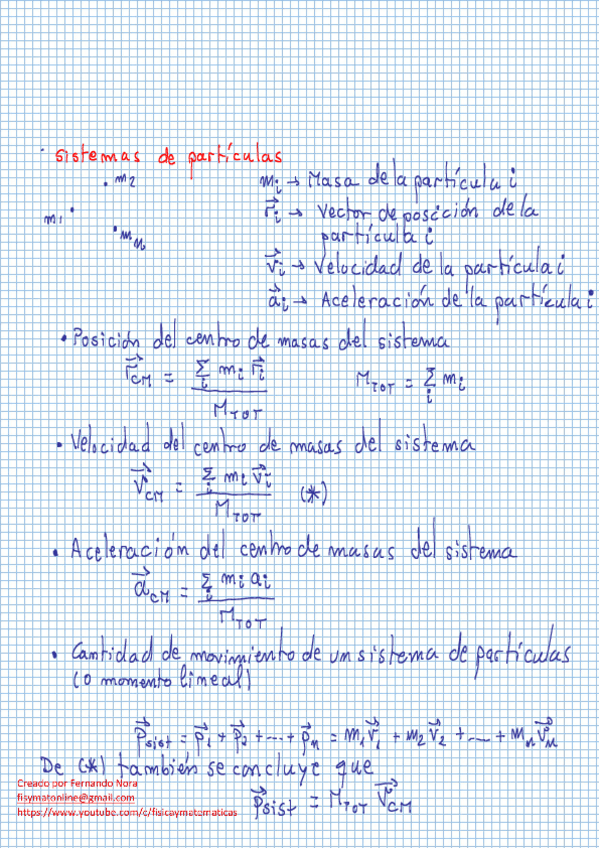 · Sistemas de partículas
· m₂
m₁ ·
· mₙ
mᵢ → Masa de la partícula i
r⃗ᵢ → Vector de posición de la
partícula i
v⃗ᵢ → Velocidad de la partícula i
a⃗ᵢ → Aceleración de la partícula i
• Posición del centro de masas del sistema
r⃗_CM = Σᵢ mᵢ r⃗ᵢ / M_TOT    M_TOT = Σᵢ mᵢ
• Velocidad del centro de masas del sistema
v⃗_CM = Σᵢ mᵢ v⃗ᵢ / M_TOT (*)
• Aceleración del centro de masas del sistema
a⃗_CM = Σᵢ mᵢ aᵢ / M_TOT
• Cantidad de movimiento de un sistema de partículas
(o momento lineal)
p⃗_sist = p⃗₁ + p⃗₂ + ... + p⃗ₙ = m₁v⃗₁ + m₂v⃗₂ + ... + mₙv⃗ₙ
De (*) también se concluye que
p⃗_sist = M_TOT v⃗_CM
Creado por Fernando Nora
fisymatonline@gmail.com
https://www.youtube.com/c/fisicaymatematicas